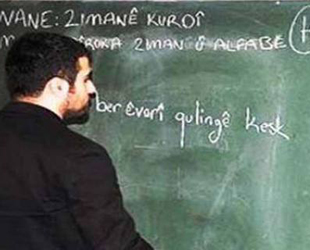 WANE: ZIMANÊ KURDÎ
ROKA ZIMAN Û ALFABÊ
ber êvarî qulingê kesk